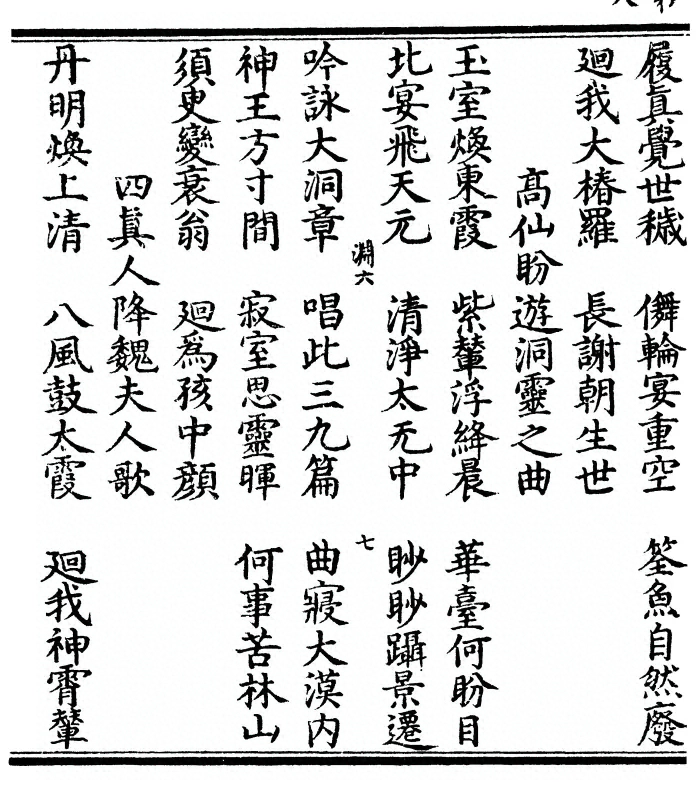 履眞覺世穢 儛輪宴重空 筌魚自然廢
廻我大椿羅 長謝朝生世
髙仙盼遊洞靈之曲
玉室煥東霞 紫輦浮絳晨 華臺何盼目
北宴飛天元 清淨太无中 眇眇躡景遷
淵六 七
吟詠大洞章 唱此三九篇 曲寢大漠内
神王方寸間 寂室思靈暉 何事苦林山
須臾變衰翁 廻爲孩中顔
四眞人降魏夫人歌
丹明煥上清 八風鼓太霞 廻我神霄輦